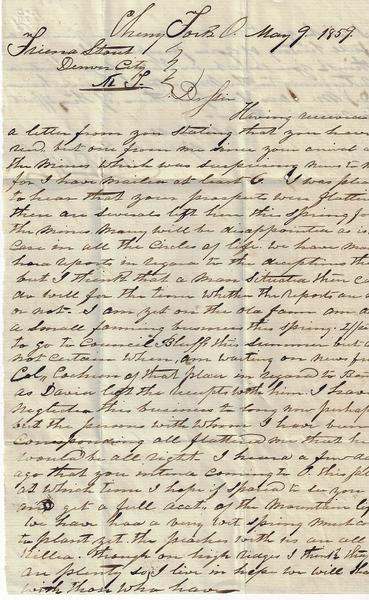 Cherry Fork O. May 9 1859
Friend Stout
Denver City
N. T.
Dr Sir
Having received
a letter from you stating that you have
recd. but one from me since your arrival at
the Mines which was surprising news to me
for I have mailed at least 6. I was pleased
to hear that your prospects were flattering
there are severals left here this spring for
the Mines Many will be disappointed as is the
case in all the Circles of life. we have many
hard reports in regard to the deceptions there
but I think that a Man situated there can
do well for the time whether the reports are
or not. I am yet on the old farm and
a small farming business this spring.
to go to Council Bluff this summer but
not certain when am waiting on news from
Col. of that place in regard to
as David left the receipts with him. I have
neglected this business to long now perhaps
but the persons with whom I have been
Corresponding all flattered me that
would be all right. I heard a few days
ago that you intend coming to O. this fall
at which time I hope if spared to see you
and get a full acct. of the Mountain
We have had a very wet spring Much
to plant yet. the peaches with us are all
killed. though on high ridges I think they
are plenty so I live in hope we will share
with those who have